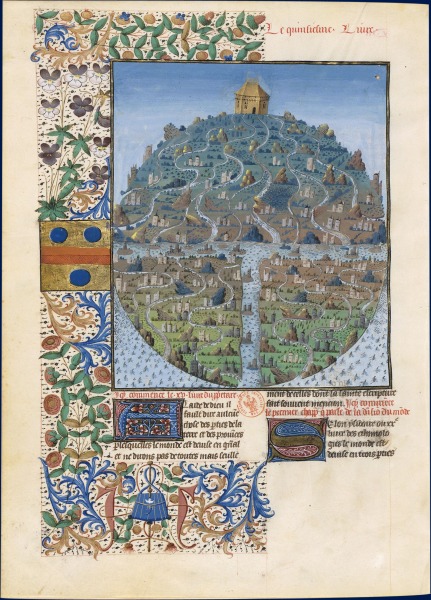 Le quinsiesme Liure
Icy commence le xv. liure du
Laide de dieu il
fault dire aucune
chose des pties de la
terre et des prouices
plesquelles le monde est deuise en gnal
et ne dirons pas de toutes mais seulle
ment de celles dont la sainte escripture
fait souuent mencion. Icy commence
le premier chap. q parle de la du mõde
Selon
liure des ethimolo
gies le monde est
deuise en trois pties